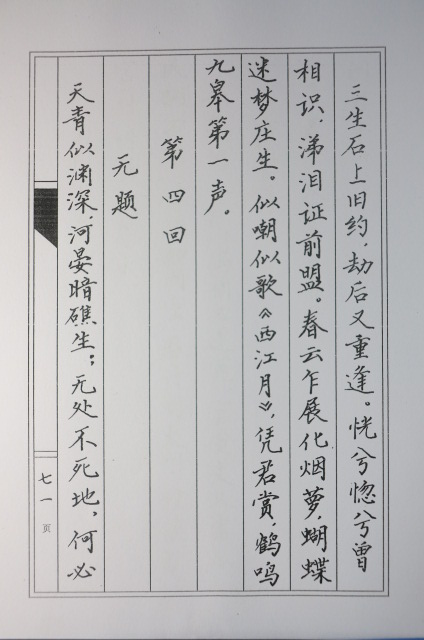 三生石上旧约，劫后又重逢。恍兮惚兮曾
相识，涕泪证前盟。春云乍展化烟萝，蝴蝶
迷梦庄生。似嘲似歌《西江月》，凭君赏，鹤鸣
九皋第一声。
第四回
无题
天青似渊深，河晏暗礁生；无处不死地，何必
七一页